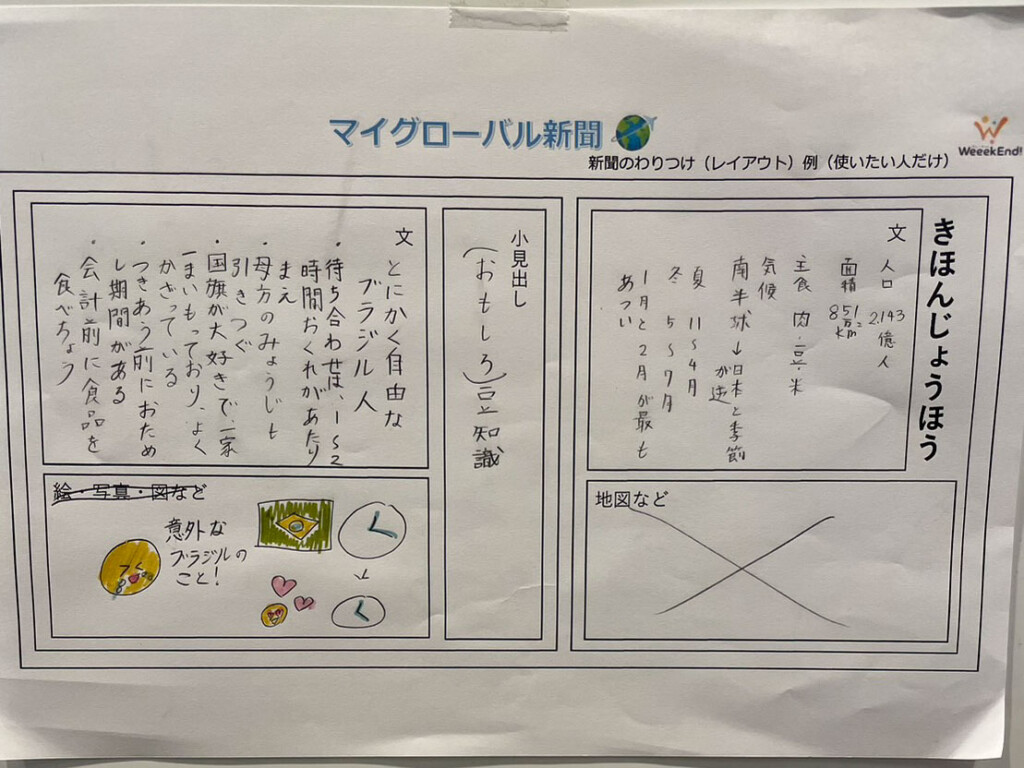 マイグローバル新聞
WeeekEnd!
新聞のわりつけ（レイアウト）例（使いたい人だけ）
きほんじょうほう
文
人口 2.143億人
面積 851万km²
主食 肉・豆・米
気候
南半球→日本と季節が逆
夏 11〜4月
冬 5〜7月
1月と2月が最も
あつい
地図など
小見出し
(おもしろ)豆知識
文
とにかく自由な
ブラジル人
・待ち合わせは、1〜2
時間おくれがあたり
まえ
・母方のみょうじも
引きつぐ
・国旗が大好きで、一家
一まいもっており、よく
かざっている
・つきあう前におため
し期間がある
・会計前に食品を
食べちょう
絵・写真・図など
意外な
ブラジルの
こと!